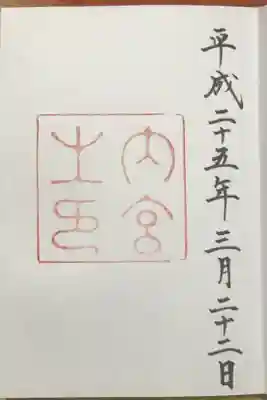 平成二十五年三月二十二日
内宮
之印